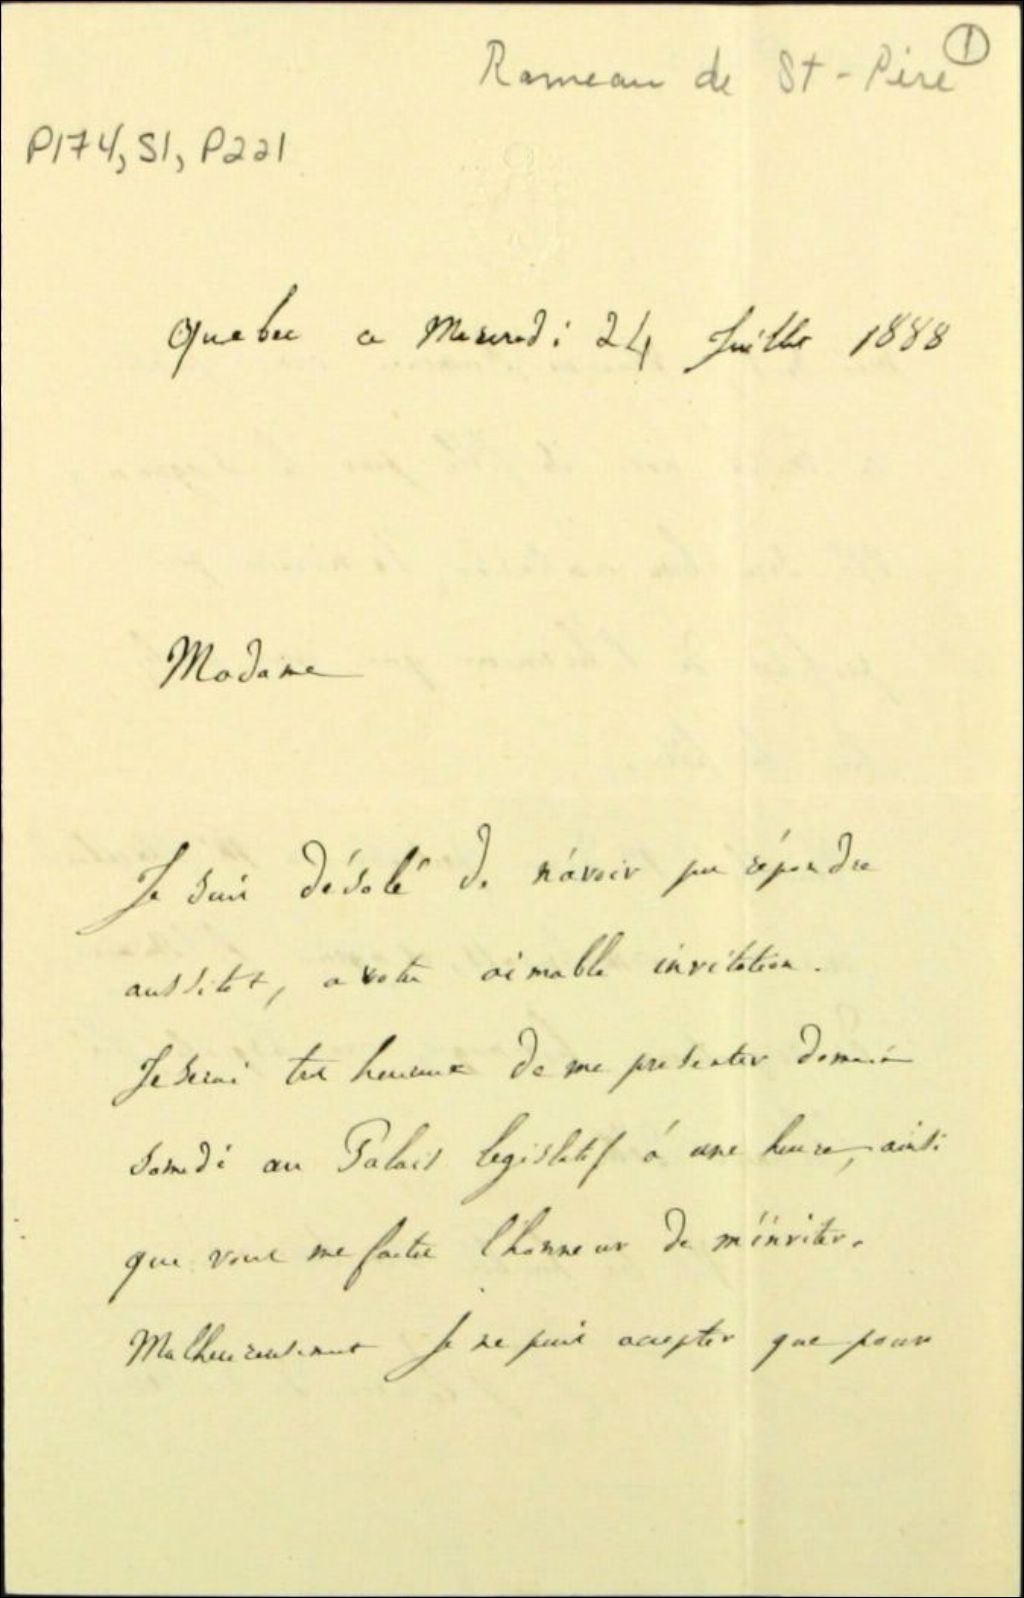 Rameau de St-Père 1
P174, S1, P221
Quebec ce Mercredi 24 Juillet 1888
Madame
Je suis désolé de n'avoir pu répondre
aussitot, a votre aimable invitation.
Je serai tres heureux de me presenter demain
samedi au Palais legislatif á une heure, ainsi
que vous me faites l'honneur de m'inviter.
Malheureusement je ne puis accepter que pour